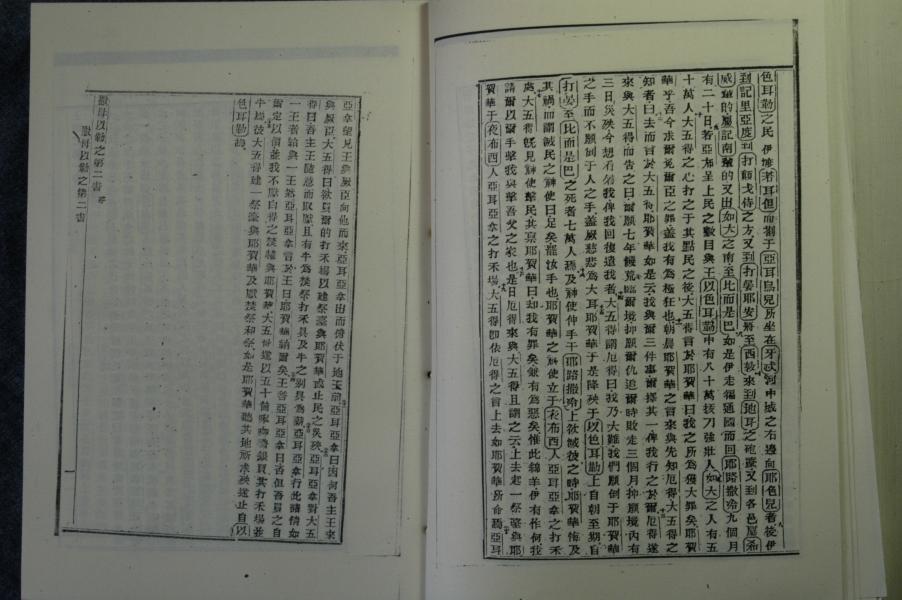 色耳勒之民伊等渡耳但而劄于亞耳烏兒所坐在牙忒河中城之右邊向耶色兒者後伊
到記里亞度到打師戈侍之方又到打晏耶安廝至西頓來到地耳之砲臺又到各邑屬希
威輩的屬記南輩的又出如大之南至比而是巴如是伊走徧通國而回耶路撒冷九個月
有二十日若亞布呈上民之數目與王以色耳勒中有八十萬拔刀強壯人如大之人有五
十萬人大五得之心打之于其點民之後大五得言於耶賀華曰我之所為獲大罪矣耶賀
華乎吾今求爾免爾臣之罪蓋我有為極狂也朝晨耶賀華之言來與先知厄得大五得之
知者曰去而言於大五得耶賀華如是云我與爾三件事爾擇其一俾我行之於爾厄得遂
來與大五得而告之曰爾願七年饑荒臨爾境抑願爾仇追爾時敗走三個月抑願境內有
三日災殃今想有何我俾我回復遣我者大五得謂厄得曰我乃大難我們願倒于耶賀華
之手而不願倒于人之手蓋厥慈悲為大耳耶賀華于是降殃于以色耳勒上自朝至期自
打晏至比而是巴之死者七萬人神使伸手于耶路撒冷上欲滅彼之時耶賀華悔及
其禍而謂滅民之神使曰足矣罷汝手也耶賀華之神使立于夜布西人亞耳亞拿之打禾
處大五得既見神使擊民其禀耶賀華曰卻我有罪矣我有為惡矣惟此綿羊伊有作何我
請爾以爾手擊我與擊吾父之家也是日厄得來與大五得且謂之云上去起一祭臺與耶
賀華于夜布西人亞耳亞拿之打禾場大五得即依厄得之言上去如耶賀華所命焉亞耳
亞拿望見王與厥臣向他而來亞耳亞拿出而俯伏于地王前亞耳亞拿曰因何吾主王來
與厥臣大五得曰欲買爾的打禾場以建祭臺與耶賀華或止民之災殃亞耳亞拿對大五
得曰吾主王隨意而取獻且有牛為焚祭打禾具及牛之別具為薪亞耳亞拿行此諸情如
一王者給與一王然亞耳亞拿言於王曰耶賀華納爾矣王答亞耳亞拿曰否但吾買之自
爾定以價並我不以白得之焚祭與耶賀華大五得遂以五十個銀買其打禾場並
牛焉彼大五得建一祭臺與耶賀華及獻焚祭和祭如是耶賀華聽其地所求殃遂止自以
色耳勒焉
撒母以勒之第二書 終
撒母以勒之第二書